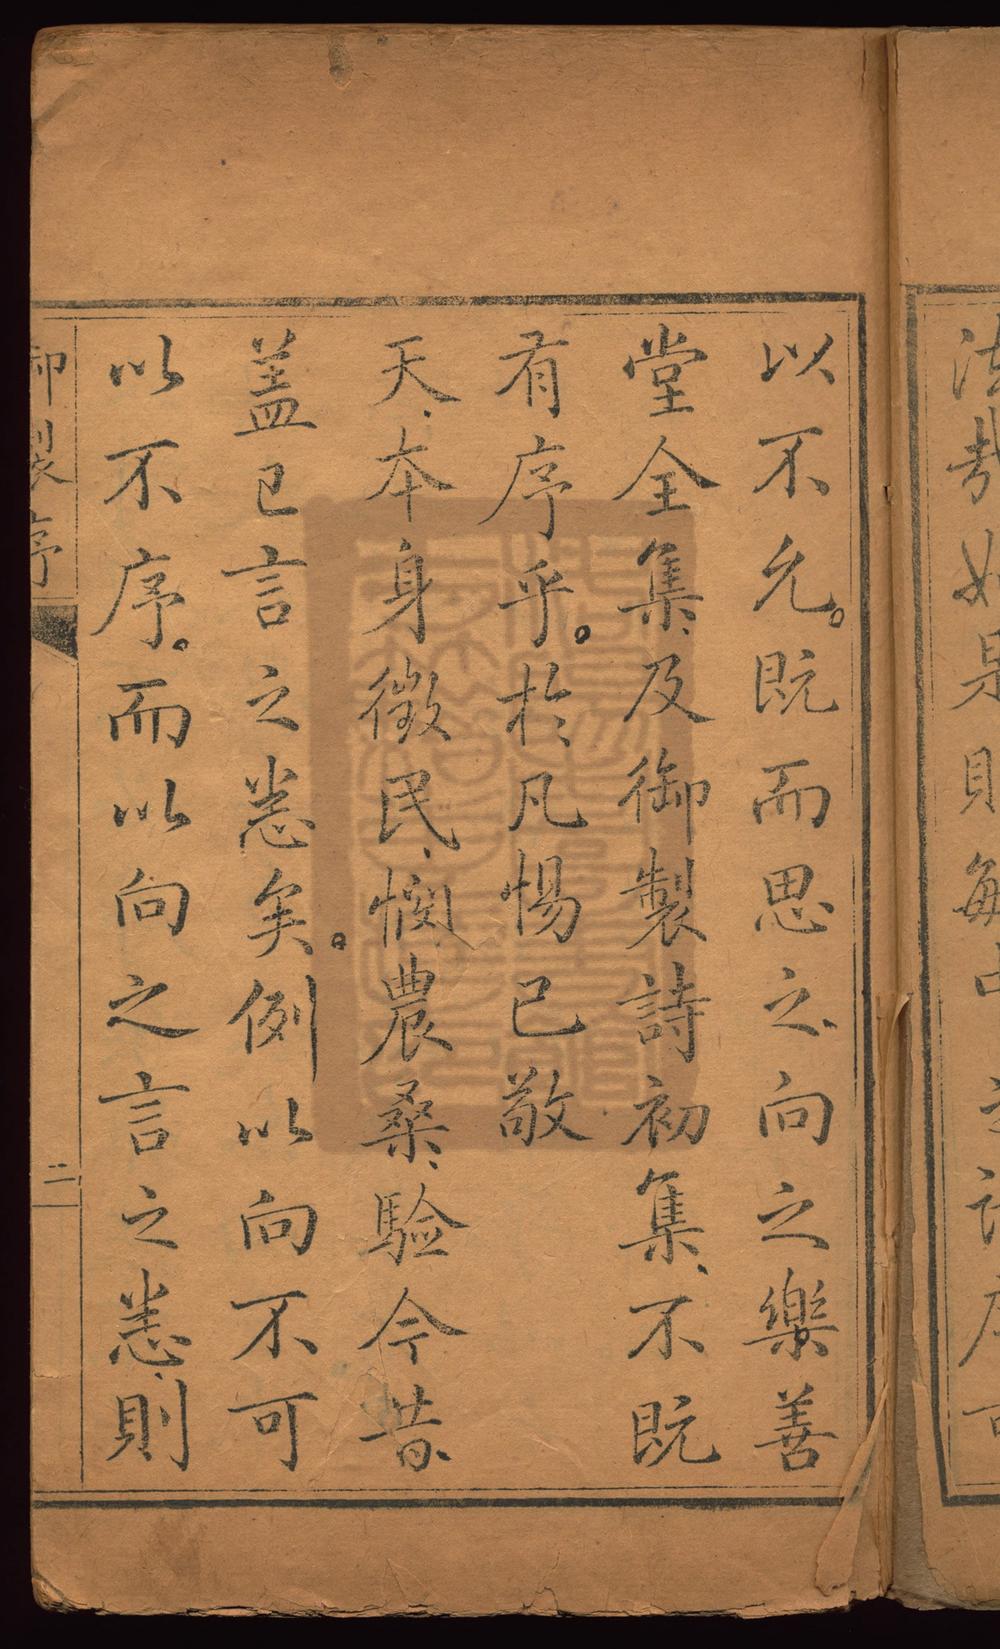 法哉如是則
以不允。既而思之、向之樂善
堂全集、及御製詩初集、不既
有序乎。於凡惕己敬
天、本身徵民、憫農桑、驗今昔、
蓋已言之悉矣。例以向不可
以不序。而以向之言之悉、則
御製序
二